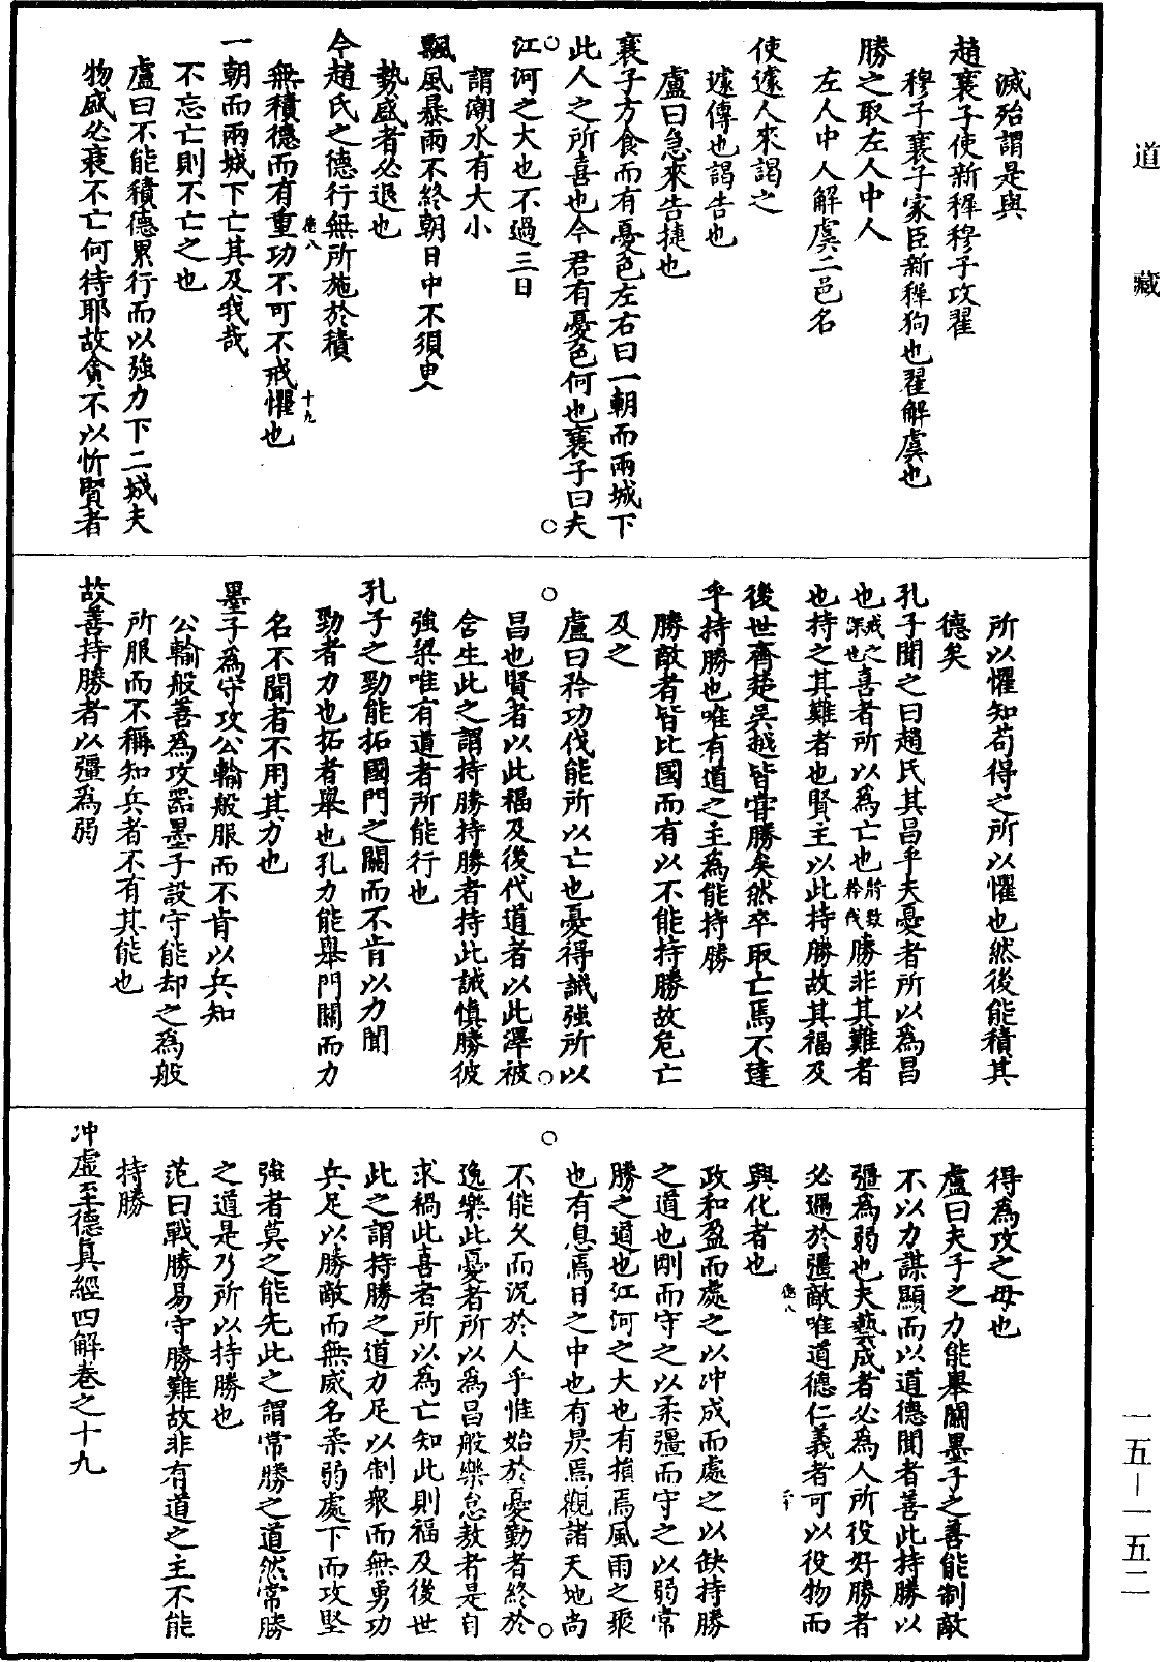 道藏
滅殆謂是與
趙襄子使新穉穆子攻翟
穆子襄子家臣新穉狗也翟解虞也
勝之取左人中人
左人中人解虞二邑名
使遽人來謁之
遽傳也謁告也
盧曰急來告捷也
襄子方食而有憂色左右曰一朝而兩城下
此人之所喜也今君有憂色何也襄子曰夫
江河之大也不過三日
謂潮水有大小
飄風暴雨不終朝日中不須臾
勢盛者必退也
今趙氏之德行無所施於積
無積德而有重功不可不戒懼也
一朝而兩城下亡其及我哉
不忘亡則不亡之也
盧曰不能積德累行而以強力下二城夫
物盛必衰不亡何待耶故貪不以忻賢者
所以懼知苟得之所以懼也然後能積其
德矣
孔子聞之曰趙氏其昌乎夫憂者所以為昌
也戒之深也喜者所以為亡也將致矜伐勝非其難者
也持之其難者也賢主以此持勝故其福及
後世齊楚吳越皆嘗勝矣然卒取亡焉不達
乎持勝也唯有道之主為能持勝
勝敵者皆比國而有以不能持勝故危亡
及之
盧曰矜功伐能所以亡也憂得誡強所以
昌也賢者以此福及後代道者以此澤被
含生此之謂持勝持勝者持此誠慎勝彼
強梁唯有道者所能行也
孔子之勁能拓國門之關而不肯以力聞
勁者力也拓者舉也孔力能舉門關而力
名不聞者不用其力也
墨子為守攻公輸般服而不肯以兵知
公輸般善為攻器墨子設守能却之為般
所服而不稱知兵者不有其能也
故善持勝者以彊為弱
得為攻之母也
盧曰夫子之力能舉關墨子之善能制敵
不以力謀顯而以道德聞者善此持勝以
彊為弱也夫藝成者必為人所役好勝者
必遇於彊敵唯道德仁義者可以役物而
與化者也
政和盈而處之以沖成而處之以缺持勝
之道也剛而守之以柔彊而守之以弱常
勝之道也江河之大也有損焉風雨之聚
也有息焉日之中也有昃焉觀諸天地尚
不能久而況於人乎惟始於憂勤者終於
逸樂此憂者所以為昌般樂怠敖者是自
求禍此喜者所以為亡知此則福及後世
此之謂持勝之道力足以制衆而無勇功
兵足以勝敵而無威名柔弱處下而攻堅
強者莫之能先此之謂常勝之道然常勝
之道是乃所以持勝也
范曰戰勝易守勝難故非有道之主不能
持勝
沖虛至德真經四解卷之十九
十九
二十
一五—一五二